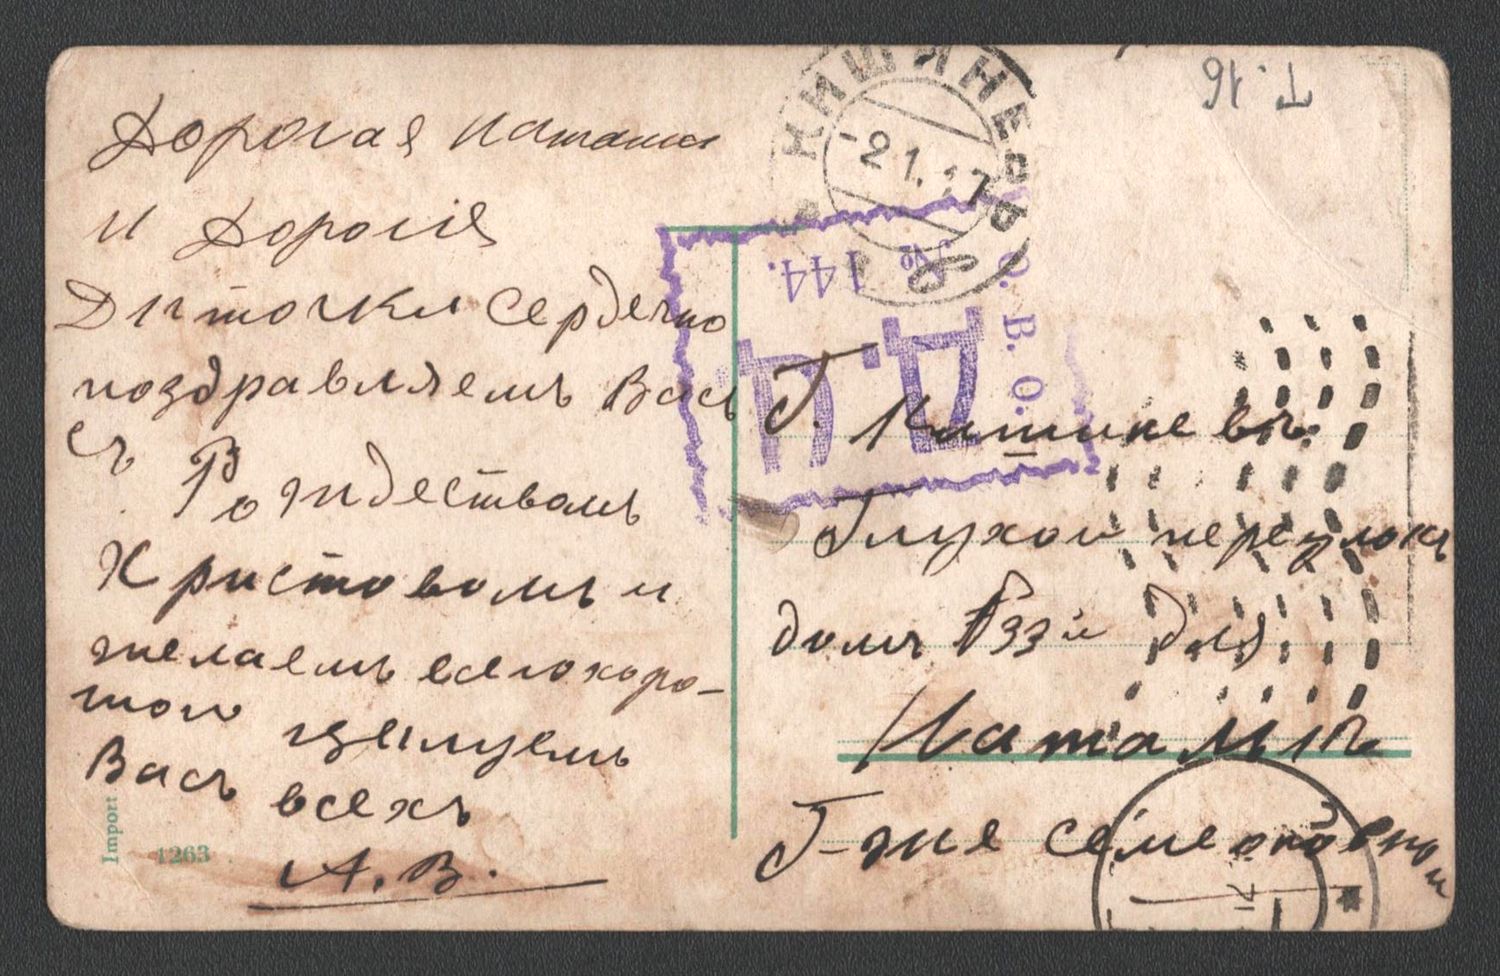 Дорогая Наташа
и Дорогія
Диточки Сердечно
поздравляемъ Васъ
съ Рождествомъ
Христовомъ и
желаемъ всего хоро-
шого цылуемъ
Васъ всехъ
А. В.
Import 1263
КИШИНЕВЪ
-2 1.17
Т. 16
№ 144.
О. В. О.
Д. Ц.
Г. Кишиневъ
Глухой переулокъ
домъ №33й для
Наталіи
Г-же Семе